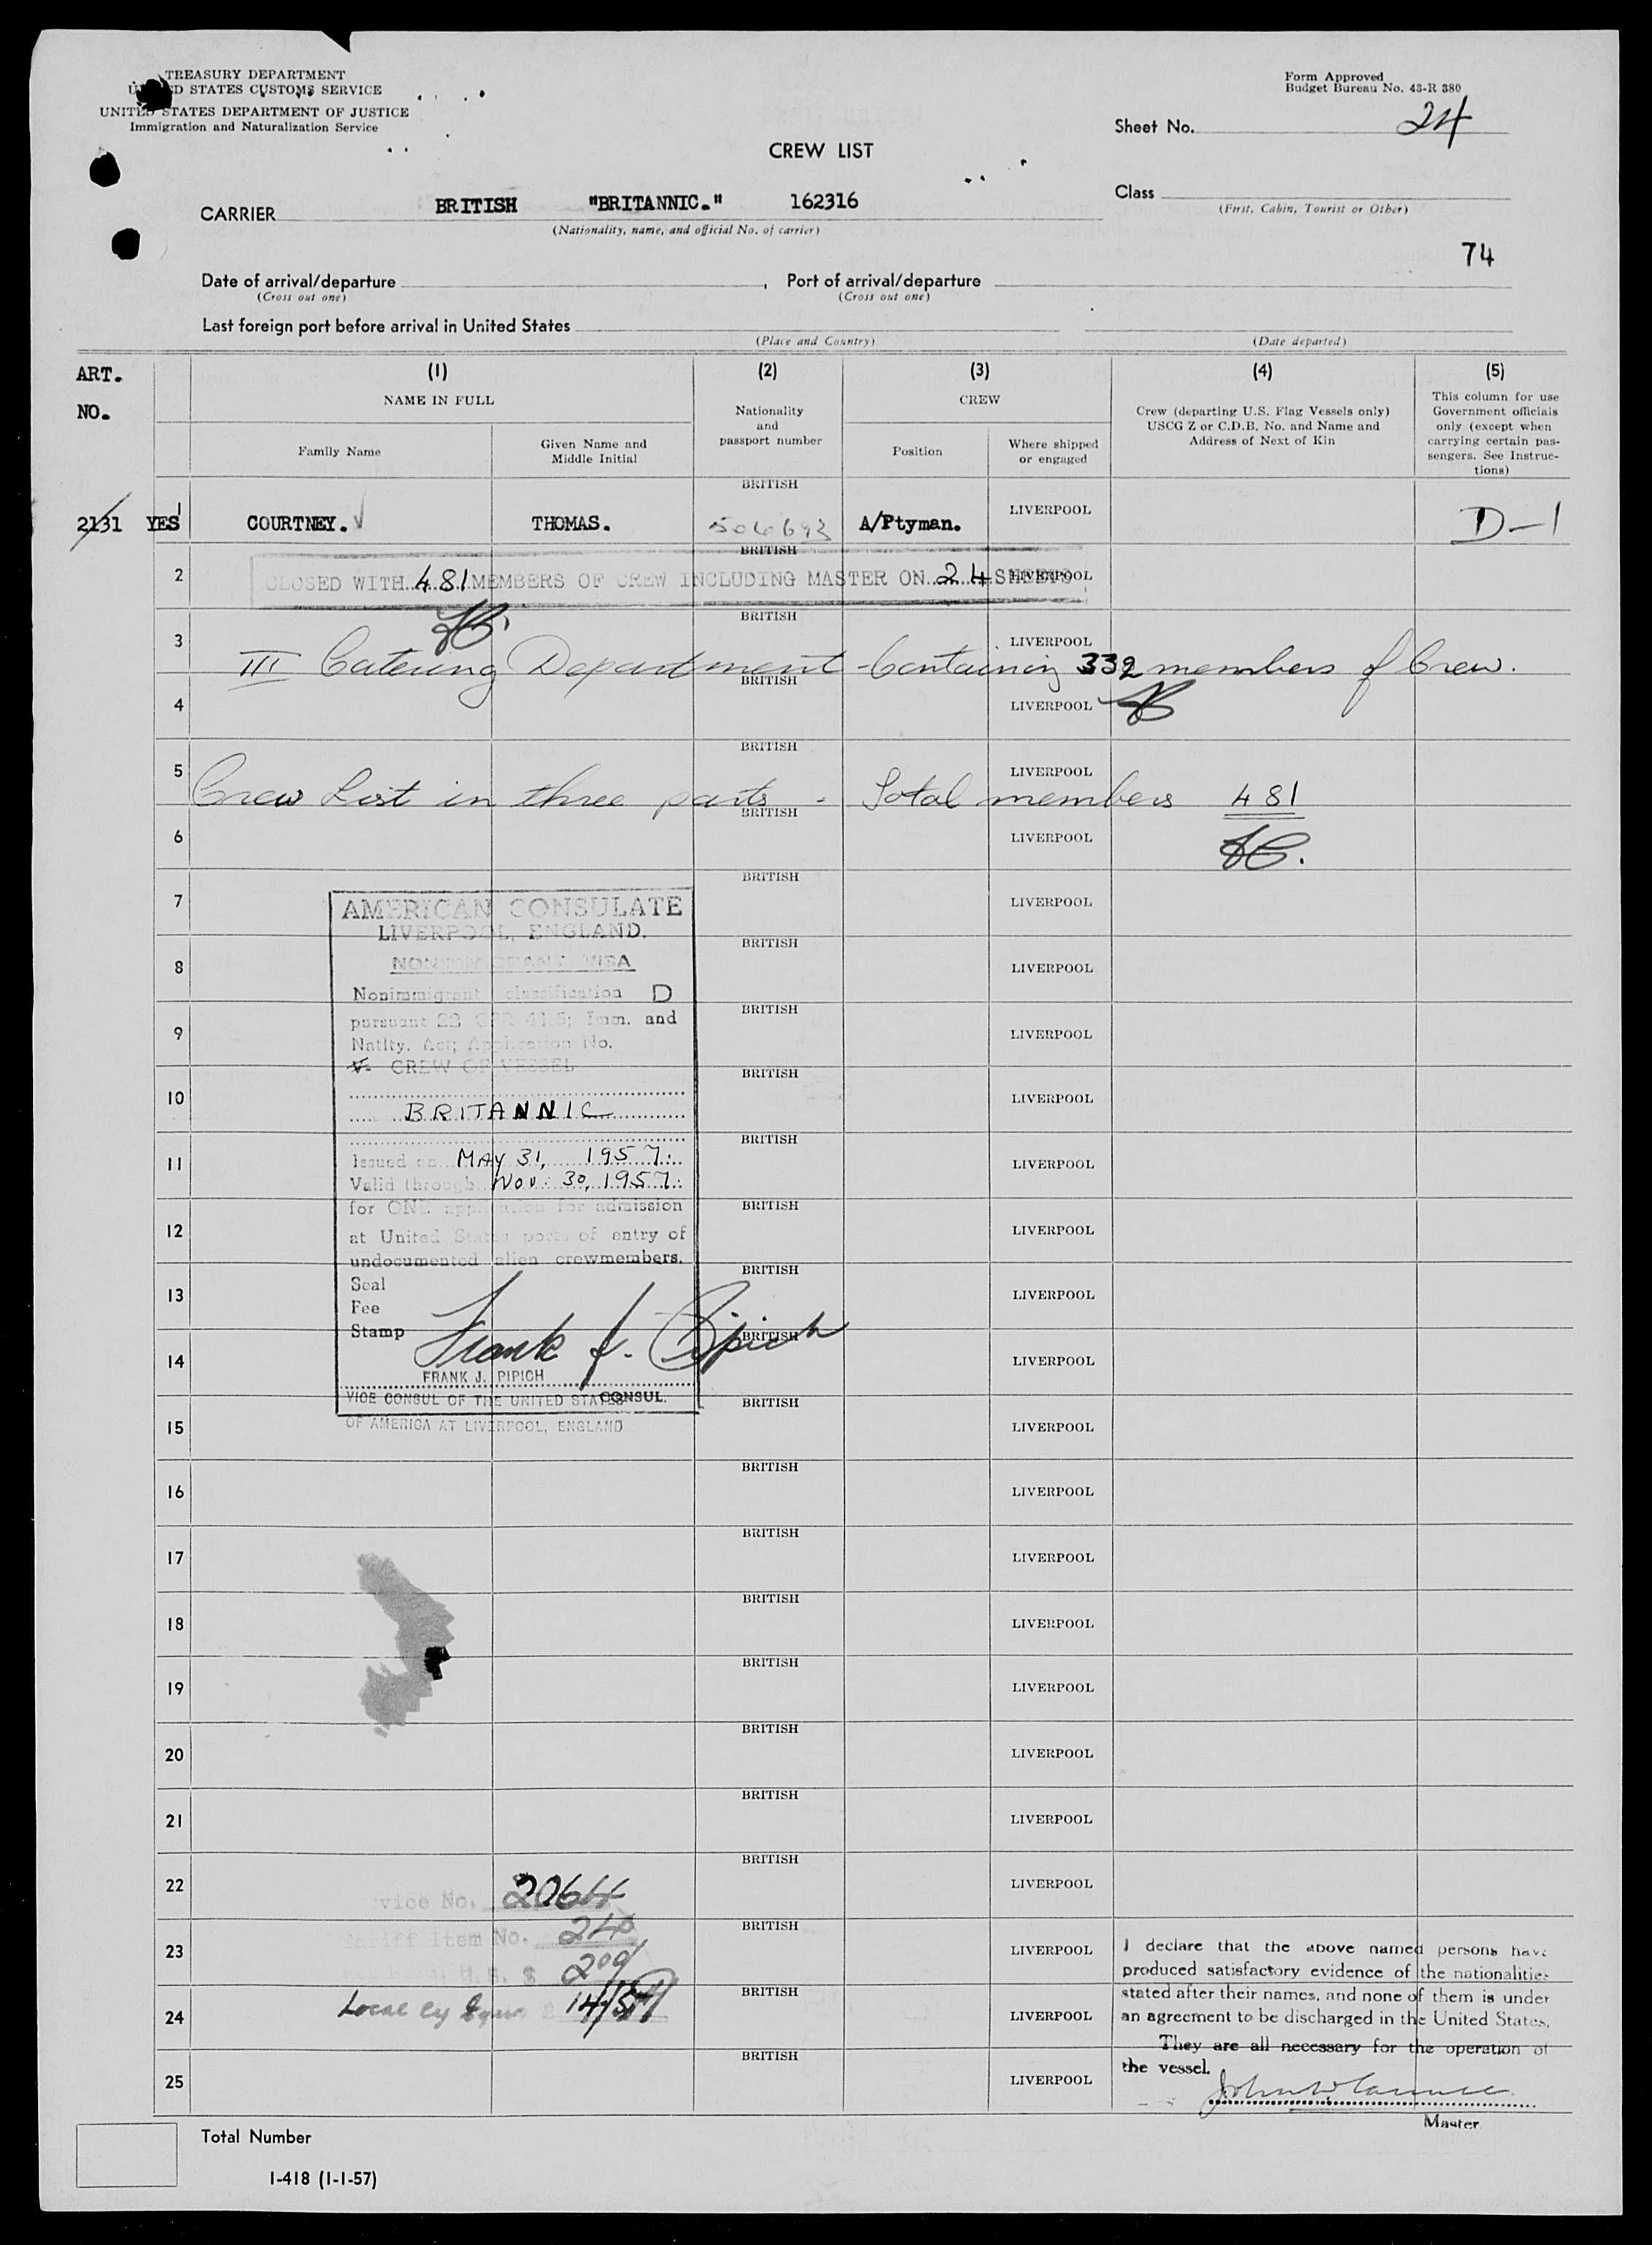 TREASURY DEPARTMENT
STATES CUSTOMS SERVICE
UNITED STATES DEPARTMENT OF JUSTICE
Immigration and Naturalization Service
Form Approved
Budget Bureau No. 43-R 380
Sheet No. 24
CREW LIST
Class
(First, Cabin, Tourist or Other)
CARRIER BRITISH "BRITANNIC." 162316
(Nationality, name, and official No. of carrier)
74
Date of arrival/departure , Port of arrival/departure
(Cross out one) (Cross out one)
Last foreign port before arrival in United States
(Place and Country) (Date departed)
ART. NO.
(1) (2) (3) (4) (5)
NAME IN FULL
Family Name
Given Name and Middle Initial
Nationality and passport number
CREW
Position
Where shipped or engaged
Crew (departing U.S. Flag Vessels only)
USCG Z or C.D.B. No. and Name and
Address of Next of Kin
This column for use
Government officials
only (except when
carrying certain pas-
sengers. See Instruc-
tions)
BRITISH
2131 YES 1 COURTNEY. THOMAS. 506693 A/Ptyman. LIVERPOOL D-1
BRITISH
2 CLOSED WITH 481 MEMBERS OF CREW INCLUDING MASTER ON 24 SHEETS LIVERPOOL
BRITISH
3 LIVERPOOL
III Catering Department - Containing 332 members of Crew.
BRITISH
4 LIVERPOOL
BRITISH
5 LIVERPOOL
Crew List in three parts - Total members 481
BRITISH
6 LIVERPOOL
BRITISH
7 LIVERPOOL
BRITISH
8 LIVERPOOL
BRITISH
9 LIVERPOOL
BRITISH
10 LIVERPOOL
BRITISH
11 LIVERPOOL
BRITISH
12 LIVERPOOL
BRITISH
13 LIVERPOOL
BRITISH
14 LIVERPOOL
BRITISH
15 LIVERPOOL
BRITISH
16 LIVERPOOL
BRITISH
17 LIVERPOOL
BRITISH
18 LIVERPOOL
BRITISH
19 LIVERPOOL
BRITISH
20 LIVERPOOL
BRITISH
21 LIVERPOOL
BRITISH
22 LIVERPOOL
BRITISH
23 LIVERPOOL
BRITISH
24 LIVERPOOL
BRITISH
25 LIVERPOOL
AMERICAN CONSULATE
LIVERPOOL, ENGLAND.
NONIMMIGRANT VISA
Nonimmigrant classification D
pursuant 22 CFR 41.5; Imm. and
Natlty. Act; Application No.
V- CREW OF VESSEL
BRITANNIC
Issued on MAY 31, 1957.
Valid through Nov. 30, 1957.
for ONE application for admission
at United States ports of entry of
undocumented alien crewmembers.
Seal
Fee
Stamp
Frank J. Pipich
FRANK J. PIPICH
VICE CONSUL OF THE UNITED STATES CONSUL.
OF AMERICA AT LIVERPOOL, ENGLAND
vice No. 20644
Tariff Item No. 24
U.S. $ 200
Local cy Equiv 14/5
I declare that the above named persons have
produced satisfactory evidence of the nationalities
stated after their names, and none of them is under
an agreement to be discharged in the United States.
They are all necessary for the operation of
the vessel.
Master
Total Number
I-418 (1-1-57)